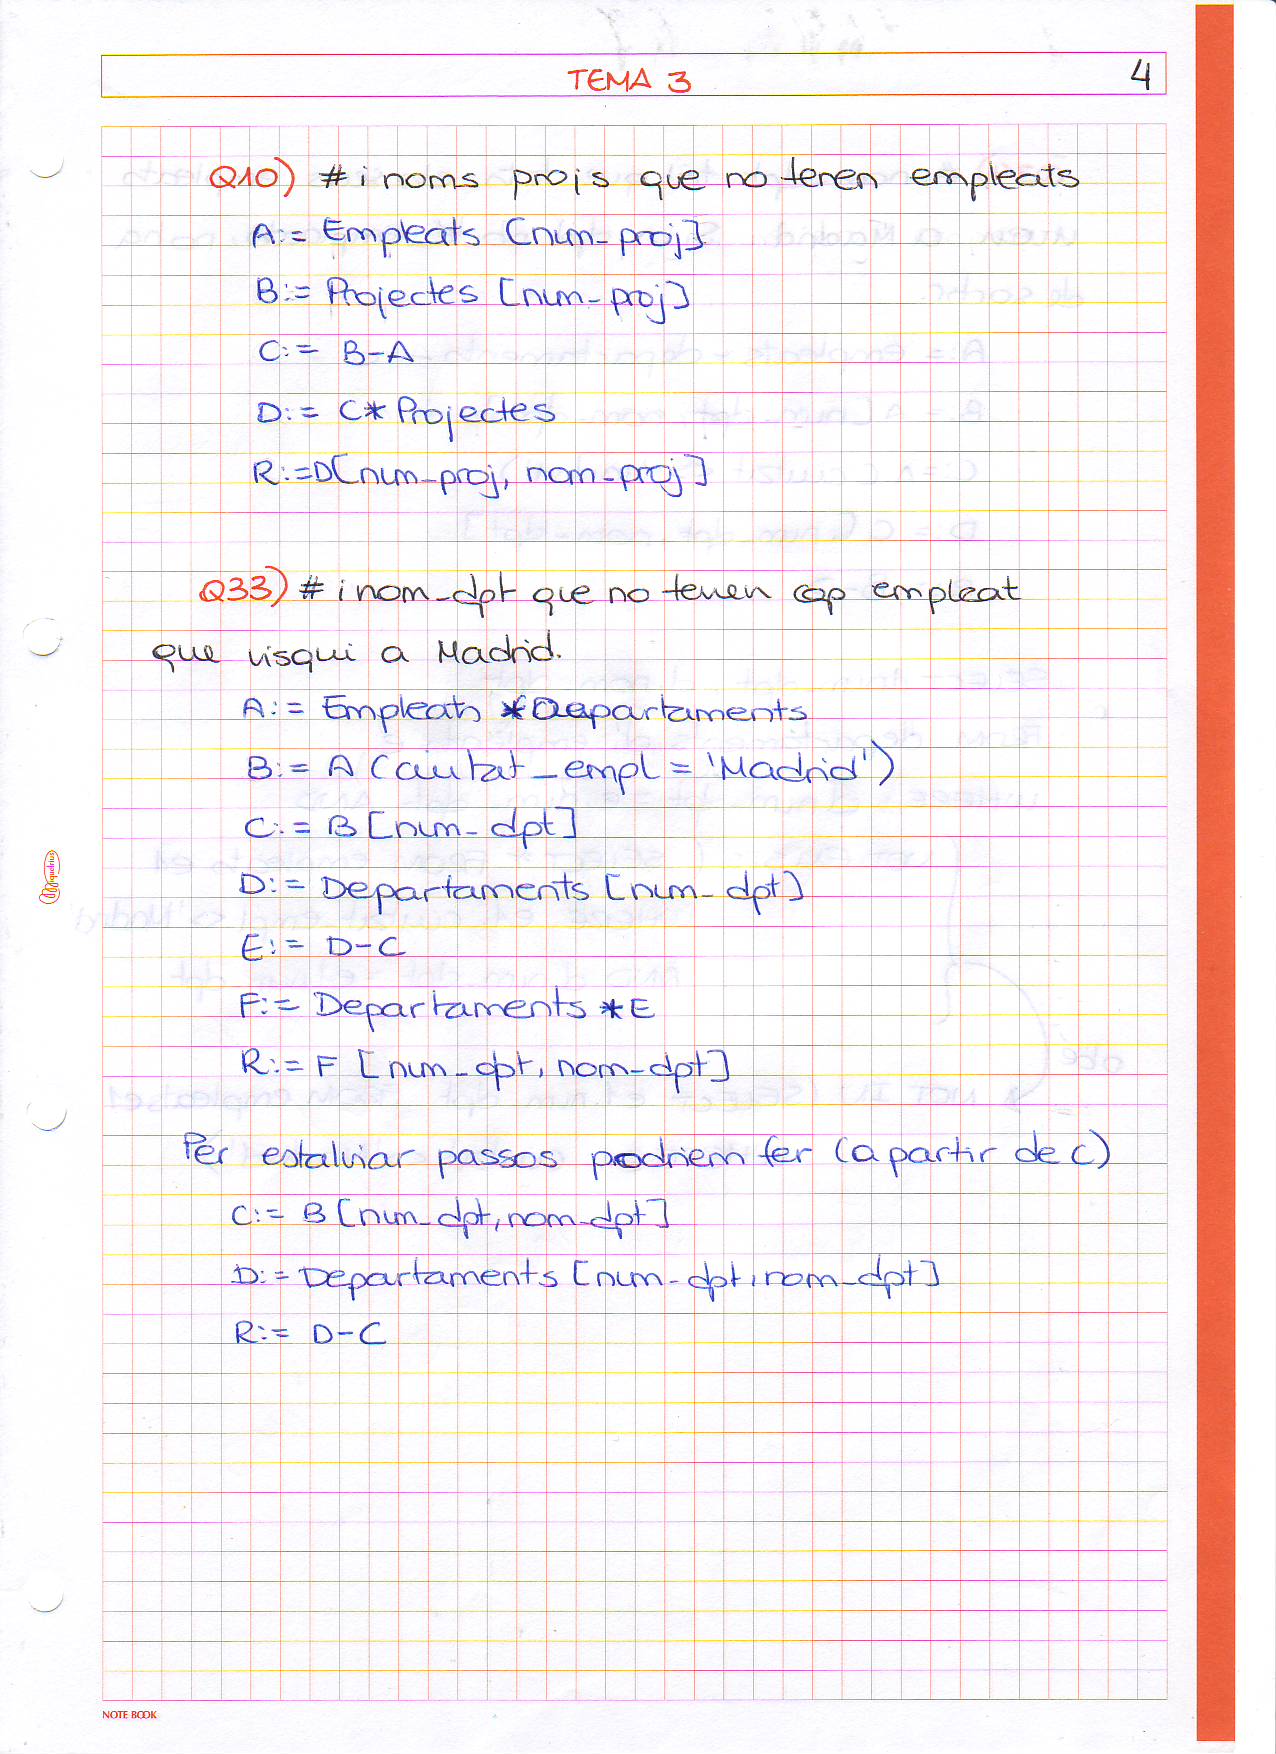 TEMA 3
4
Q10) # i noms projs que no tenen empleats
A:= Empleats [num_proj]
B:= Projectes [num_proj]
C:= B-A
D:= C* Projectes
R:=D[num_proj, nom_proj]
Q33) # i nom_dpt que no tenen cap empleat
que visqui a Madrid.
A:= Empleats *Departaments
B:= A (ciutat_empl = 'Madrid')
C:= B [num_dpt]
D:= Departaments [num_dpt]
E:= D-C
F:= Departaments * E
R:= F [num_dpt, nom_dpt]
Per estalviar passos podriem fer (a partir de C)
C:= B [num_dpt, nom_dpt]
D:= Departaments [num_dpt, nom_dpt]
R:= D-C
miquelrius
NOTE BOOK